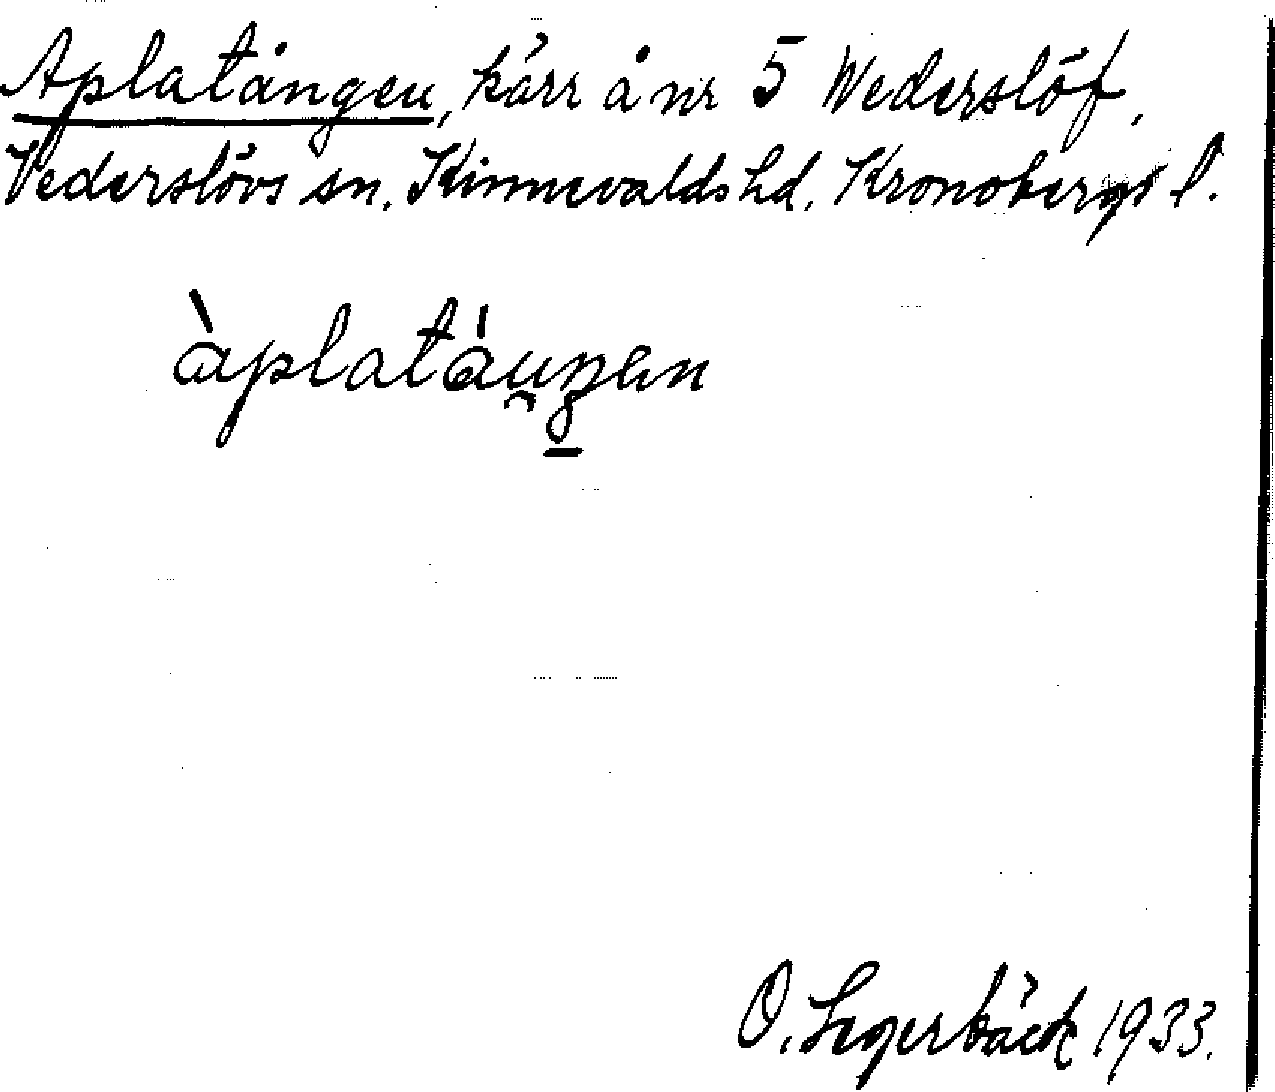 Aplatången, kärr å nr 5 Wederslöf,
Vederslövs sn. Kinnevalds hd. Kronobergs l.
àplatáuŋen
O. Segerbäck 1933.